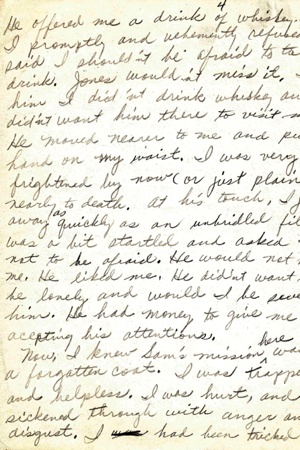 4
He offered me a drink of whiskey.
I promptly and vehemently refused
said I should'nt be afraid to ta
drink. Jones would'nt miss it.
him I did'nt drink whiskey an
did'nt want him there to visit
He moved nearer to me and pu
hand on my waist. I was very
frightened by now (or just plain
nearly to death. At his touch, I j
away as quickly as an unbridled fil
was a bit startled and asked
not to be afraid. He would not
me. He liked me. He did'nt want
be lonely and would I be
him. He had money to give me
acepting his attentions.
Now, I knew Sam's mission here was
a forgotten coat. I was trappe
and helpless. I was hurt, and
sickened through with anger an
disgust. I had been tricked